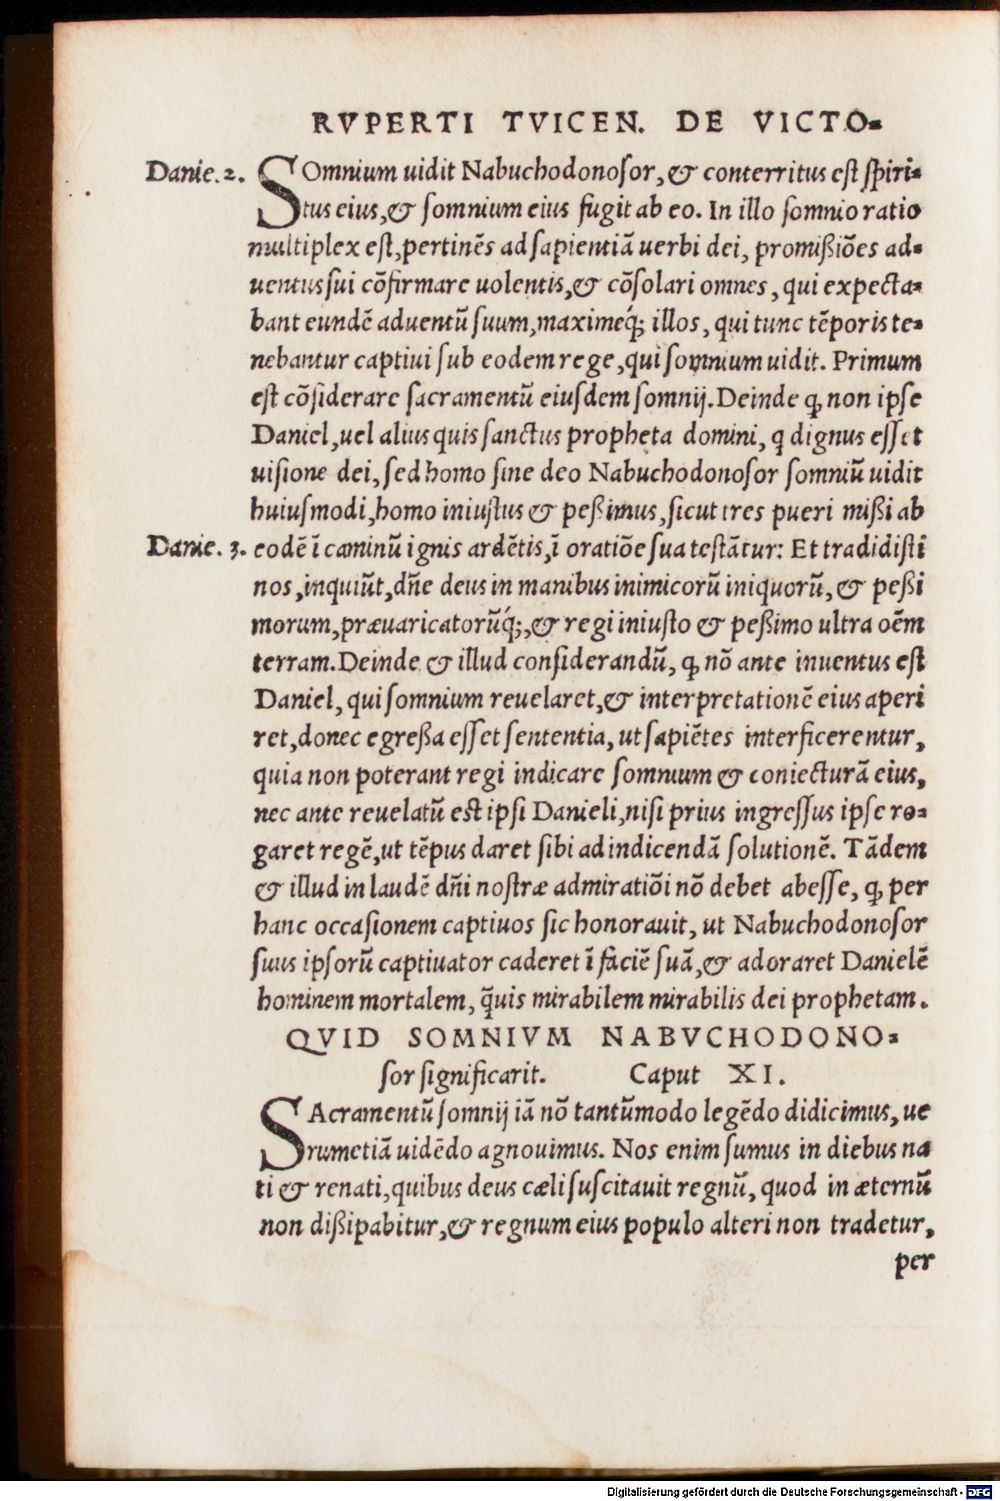 RVPERTI TVICEN. DE VICTO-
Danie.2. SOmnium uidit Nabuchodonosor, & conterritus est spiri-
tus eius, & somnium eius fugit ab eo. In illo somnio ratio
multiplex est, pertinẽs ad sapientiã uerbi dei, promißiões ad-
uentus sui cõfirmare uolentis, & cõsolari omnes, qui expecta-
bant eundẽ aduentũ suum, maximeq́; illos, qui tunc tẽporis te-
nebantur captiui sub eodem rege, qui somnium uidit. Primum
est cõsiderare sacramentũ eiusdem somnij. Deinde ꝙ non ipse
Daniel, uel alius quis sanctus propheta domini, q dignus esset
uisione dei, sed homo sine deo Nabuchodonosor somniũ uidit
huiusmodi, homo iniustus & peßimus, sicut tres pueri mißi ab
Danie. 3. eodẽ ĩ caminũ ignis ardẽtis, ĩ oratiõe sua testãtur: Et tradidisti
nos, inquiũt, dñe deus in manibus inimicorũ iniquorũ, & peßi
morum, præuaricatorũq́;, & regi iniusto & peßimo ultra oẽm
terram. Deinde & illud considerandũ, ꝙ nõ ante inuentus est
Daniel, qui somnium reuelaret, & interpretationẽ eius aperi
ret, donec egreßa esset sententia, ut sapiẽtes interficerentur,
quia non poterant regi indicare somnium & coniecturã eius,
nec ante reuelatũ est ipsi Danieli, nisi prius ingressus ipse ro-
garet regẽ, ut tẽpus daret sibi ad indicendã solutionẽ. Tãdem
& illud in laudẽ dñi nostræ admiratiõi nõ debet abesse, ꝙ per
hanc occasionem captiuos sic honorauit, ut Nabuchodonosor
suus ipsorũ captiuator caderet ĩ faciẽ suã, & adoraret Danielẽ
hominem mortalem, q̃uis mirabilem mirabilis dei prophetam.
QVID SOMNIVM NABVCHODONO-
sor significarit. Caput XI.
SAcramentũ somnij iã nõ tantũmodo legẽdo didicimus, ue
rumetiã uidẽdo agnouimus. Nos enim sumus in diebus na
ti & renati, quibus deus cæli suscitauit regnũ, quod in æternũ
non dißipabitur, & regnum eius populo alteri non tradetur,
per
Digitalisierung gefördert durch die Deutsche Forschungsgemeinschaft - DFG